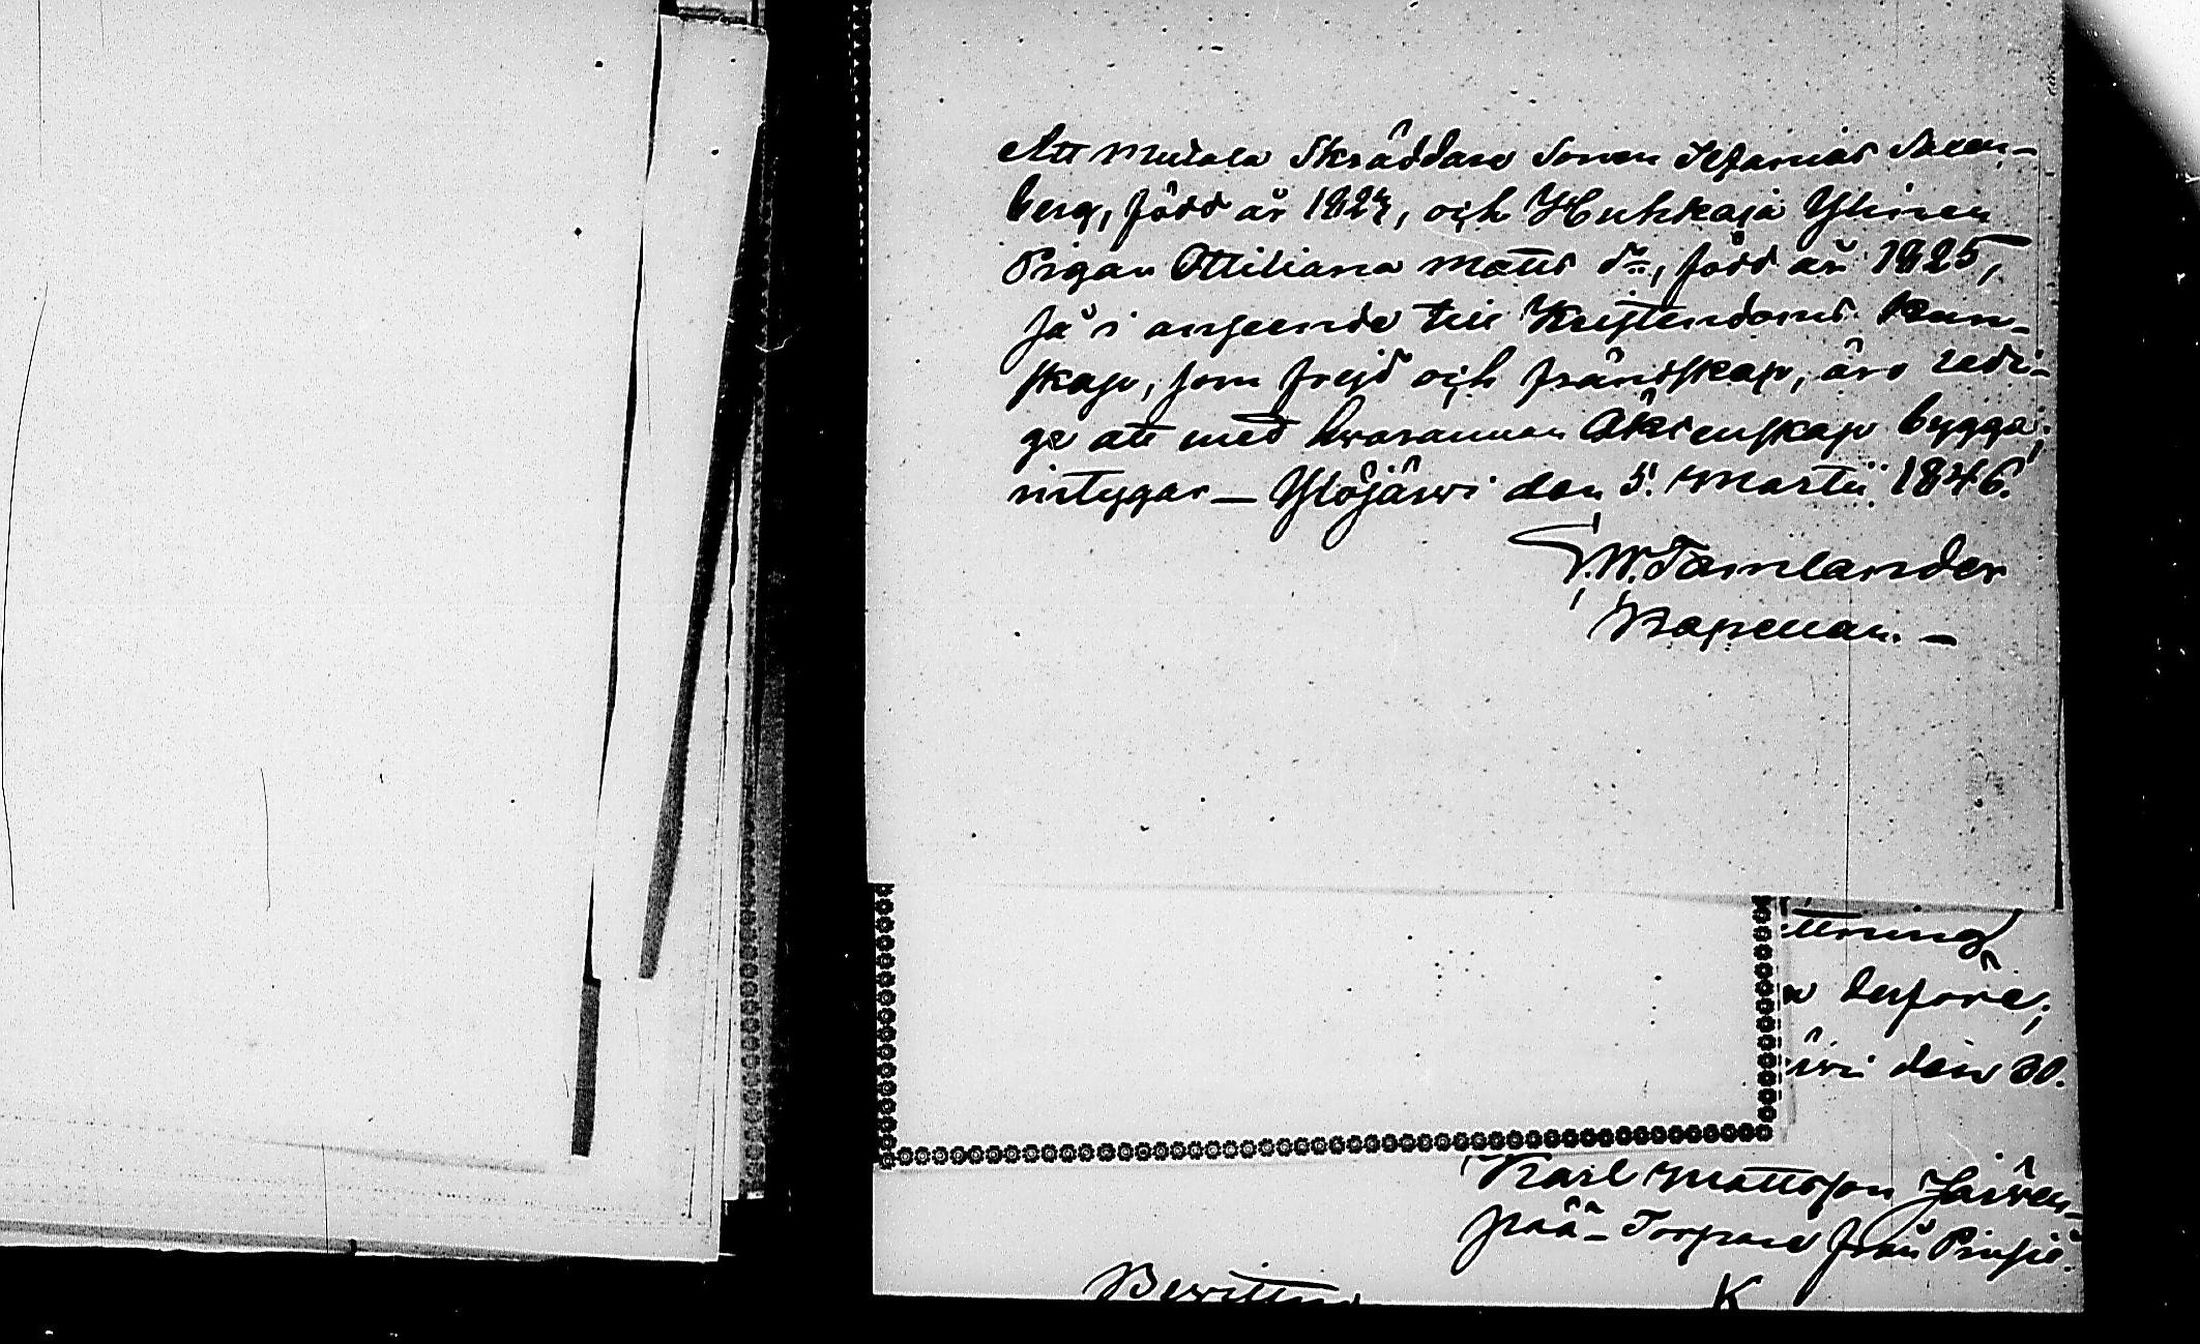 Att Mutala Skräddare Sonen Jeharias Saxen-
berg, född år 1824, och Huhkaja Ylinen
Pigan Ottiliana Matts dr, född år 1825,
få i anseende till Kristendoms kun-
skap, som frejd och frändskap, äro ledi-
ge att med hvarannan Äktenskap bygga,
intygar — Ylöjärwi den 5. Martii 1846.
G. W. Tamlander
Kapellan. —
ttning
derföre;
ärwi den 30.
Karl Mattsson Järven-
pää - Torpare från Pinsiö.
Bewittna
K